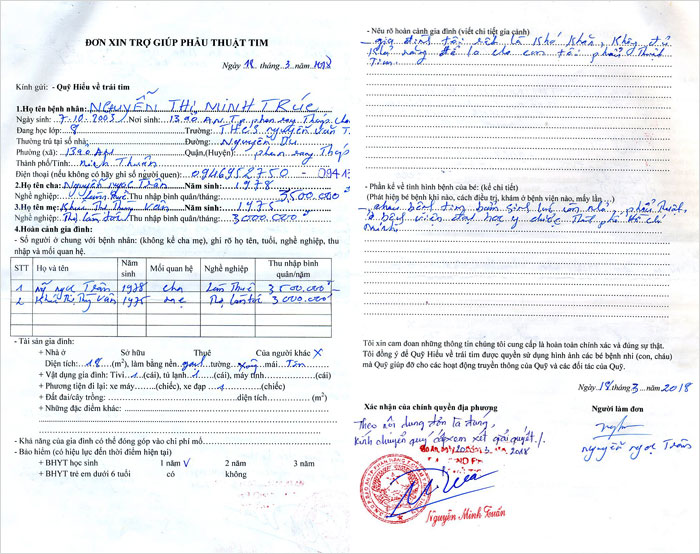 ĐƠN XIN TRỢ GIÚP PHẪU THUẬT TIM
Ngày 18 tháng 3 năm 2018
Kính gửi: - Quỹ Hiểu về trái tim
1.Họ tên bệnh nhân: NGUYỄN THỊ MINH TRÚC
Ngày sinh: 7-10-2003 Nơi sinh:
Đang học lớp: 8 Trường: T.H.C.S nguyễn Văn T
Thường trú tại số nhà: Đường: Nguyễn Du
Phường (xã): Quận,(Huyện): phan rang Tháp
Thành phố/Tỉnh: ninh Thuận
Điện thoại (nếu không có hãy ghi số người quen): 0946952750 - 0941
2.Họ tên cha: Nguyễn ngọc Trân Năm sinh: 1978
Nghề nghiệp: Làm Thuê Thu nhập bình quân/tháng: 3500.000đ
3.Họ tên mẹ: Năm sinh: 1975
Nghề nghiệp: Thợ làm tóc Thu nhập bình quân/tháng: 3000.000đ
4.Hoàn cảnh gia đình:
- Số người ở chung với bệnh nhân: (không kể cha mẹ), ghi rõ họ tên, tuổi, nghề nghiệp, thu
nhập và mối quan hệ.
STT Họ và tên Năm sinh Mối quan hệ Nghề nghiệp Thu nhập bình quân/năm
1 ngọc Trân 1978 cha Làm Thuê 3500.000
2 1975 mẹ Thợ làm tóc 3000.000
- Tài sản gia đình:
+ Nhà ở Sở hữu Thuê Của người khác X
Diện tích: 18 (m2), làm bằng nền: tường: mái Tôn
+ Vật dụng gia đình: Tivi 1 (cái), tủ lạnh 1 (cái), máy tính (cái)
+ Phương tiện đi lại: xe máy (chiếc), xe đạp 1 (chiếc)
+ Đất đai/cây trồng: diện tích (m2)
+ Những đặc điểm khác:
- Khả năng của gia đình có thể đóng góp vào chi phí mổ
- Bảo hiểm (có hiệu lực đến thời điểm hiện tại)
+ BHYT học sinh 1 năm V 2 năm 3 năm
+ BHYT trẻ em dưới 6 tuổi có không
- Nêu rõ hoàn cảnh gia đình (viết chi tiết gia cảnh)
- gia đình tôi rất là khó khăn, không đủ
khả năng để lo cho con tôi phẫu Thuật
Tim.
- Phần kể về tình hình bệnh của bé: (kể chi tiết)
(Phát hiện bị bệnh khi nào, cách điều trị, khám ở bệnh viện nào, mấy lần ...)
bệnh tim bẩm sinh lúc còn nhỏ, phẫu Thuật,
ở bệnh viện đại học y dược Thành phố Hồ Chí
Minh.
Tôi xin cam đoan những thông tin chúng tôi cung cấp là hoàn toàn chính xác và đúng sự thật.
Tôi đồng ý để Quỹ Hiểu về trái tim được quyền sử dụng hình ảnh các bé bệnh nhi (con, cháu)
mà Quỹ giúp đỡ cho các hoạt động truyền thông của Quỹ và các đối tác của Quỹ.
Ngày 18 tháng 3 năm 2018
Xác nhận của chính quyền địa phương
Người làm đơn
Theo nội dung đơn là đúng,
Kính chuyển quý cấp xem xét giải quyết./.
Nguyễn ngọc Trân
Nguyễn Minh Tuấn